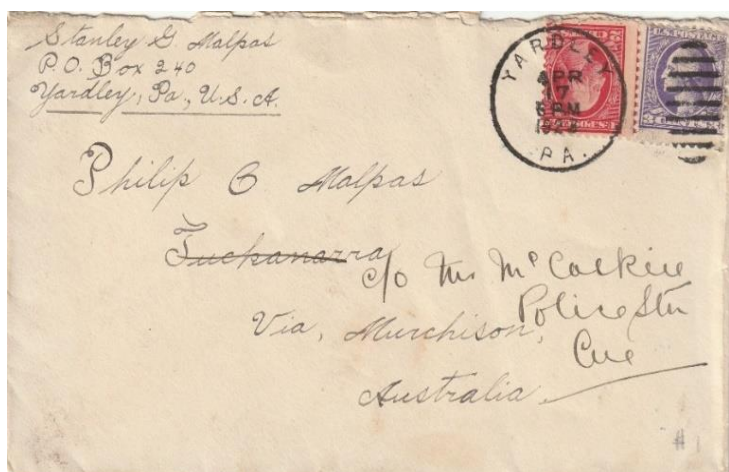 Stanley G. Malpas
P.O. Box 240
Yardley, Pa., U.S.A.
YARDLEY
APR
17
6 PM
PA.
2 CENTS 2
U.S. POSTAGE
3 CENTS
Philip C Malpas
Tuckanarra
c/o Mr
Police Stn
Via, Murchison,
Cue
Australia.
# 1